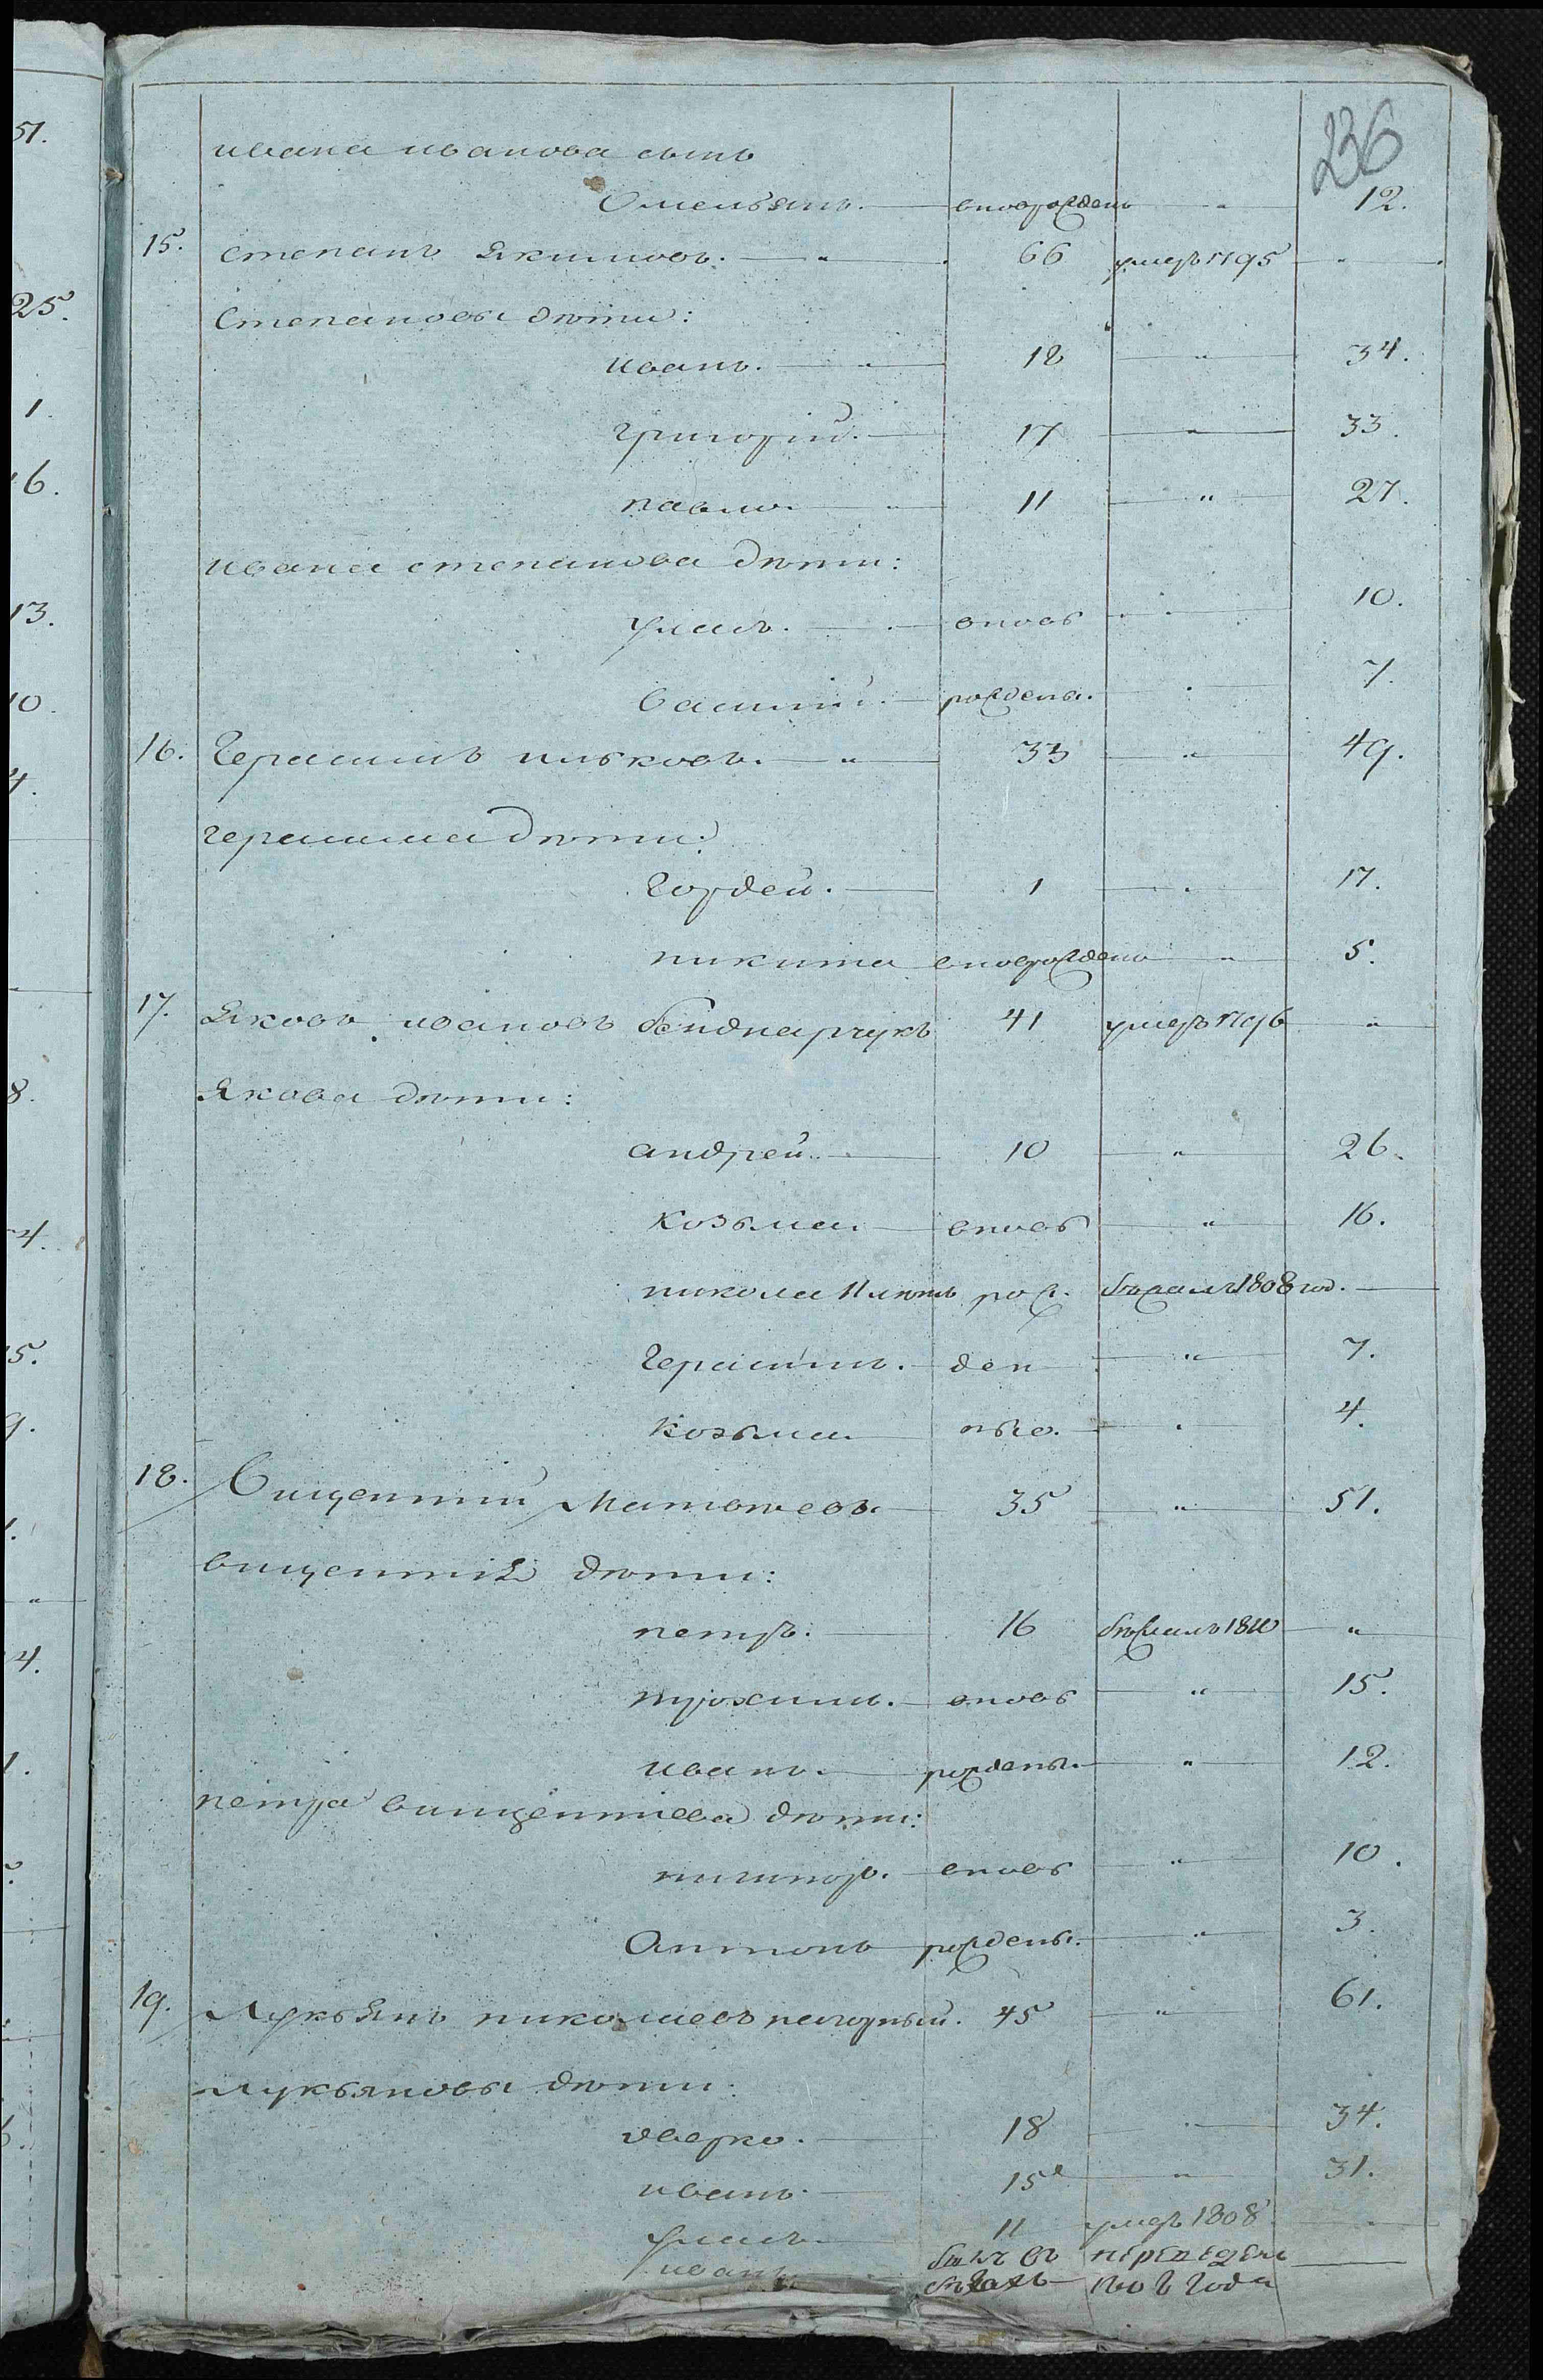 236
ивана иванова сынъ
Омельянъ. вноврожденъ " 12.
15. степанъ Якимовъ. " 66 умеръ 1795 "
Степановы дѣти:
иванъ. " 18 " 34.
григорій. 17 " 33.
павло. " 11 " 27.
ивана степанова дѣти:
уласъ. вновь " 10.
василій. рождены. " 7.
16. Герасимъ ильковъ. " 33 " 49.
герасима дѣти:
Гордей. 1 " 17.
никита вноврожденъ " 5.
17. Яковъ ивановъ бенднарчукъ 41 умеръ 1796 "
Якова дѣти:
андрей. 10 " 26.
Козьма. вновь " 16.
никола 11 лѣтъ рож. бѣжалъ 1808 год.
Герасимъ. ден " 7.
козьма ные. " 4.
18. Винцентий Матвѣевъ 35 " 51.
винцентія дѣти:
петръ. 16 бѣжалъ 1810 "
трохимъ. вновь " 15.
иванъ. рождены. " 12.
петра винцентиева дѣти:
ничипоръ. вновь " 10.
Антонъ рождены. " 3.
19. Лукьянъ николаевъ 45 " 61.
лукьяновы дѣти:
аверко. 18 " 34.
иванъ. 15 " 31.
уласъ. 11 умеръ 1808 "
иванъ